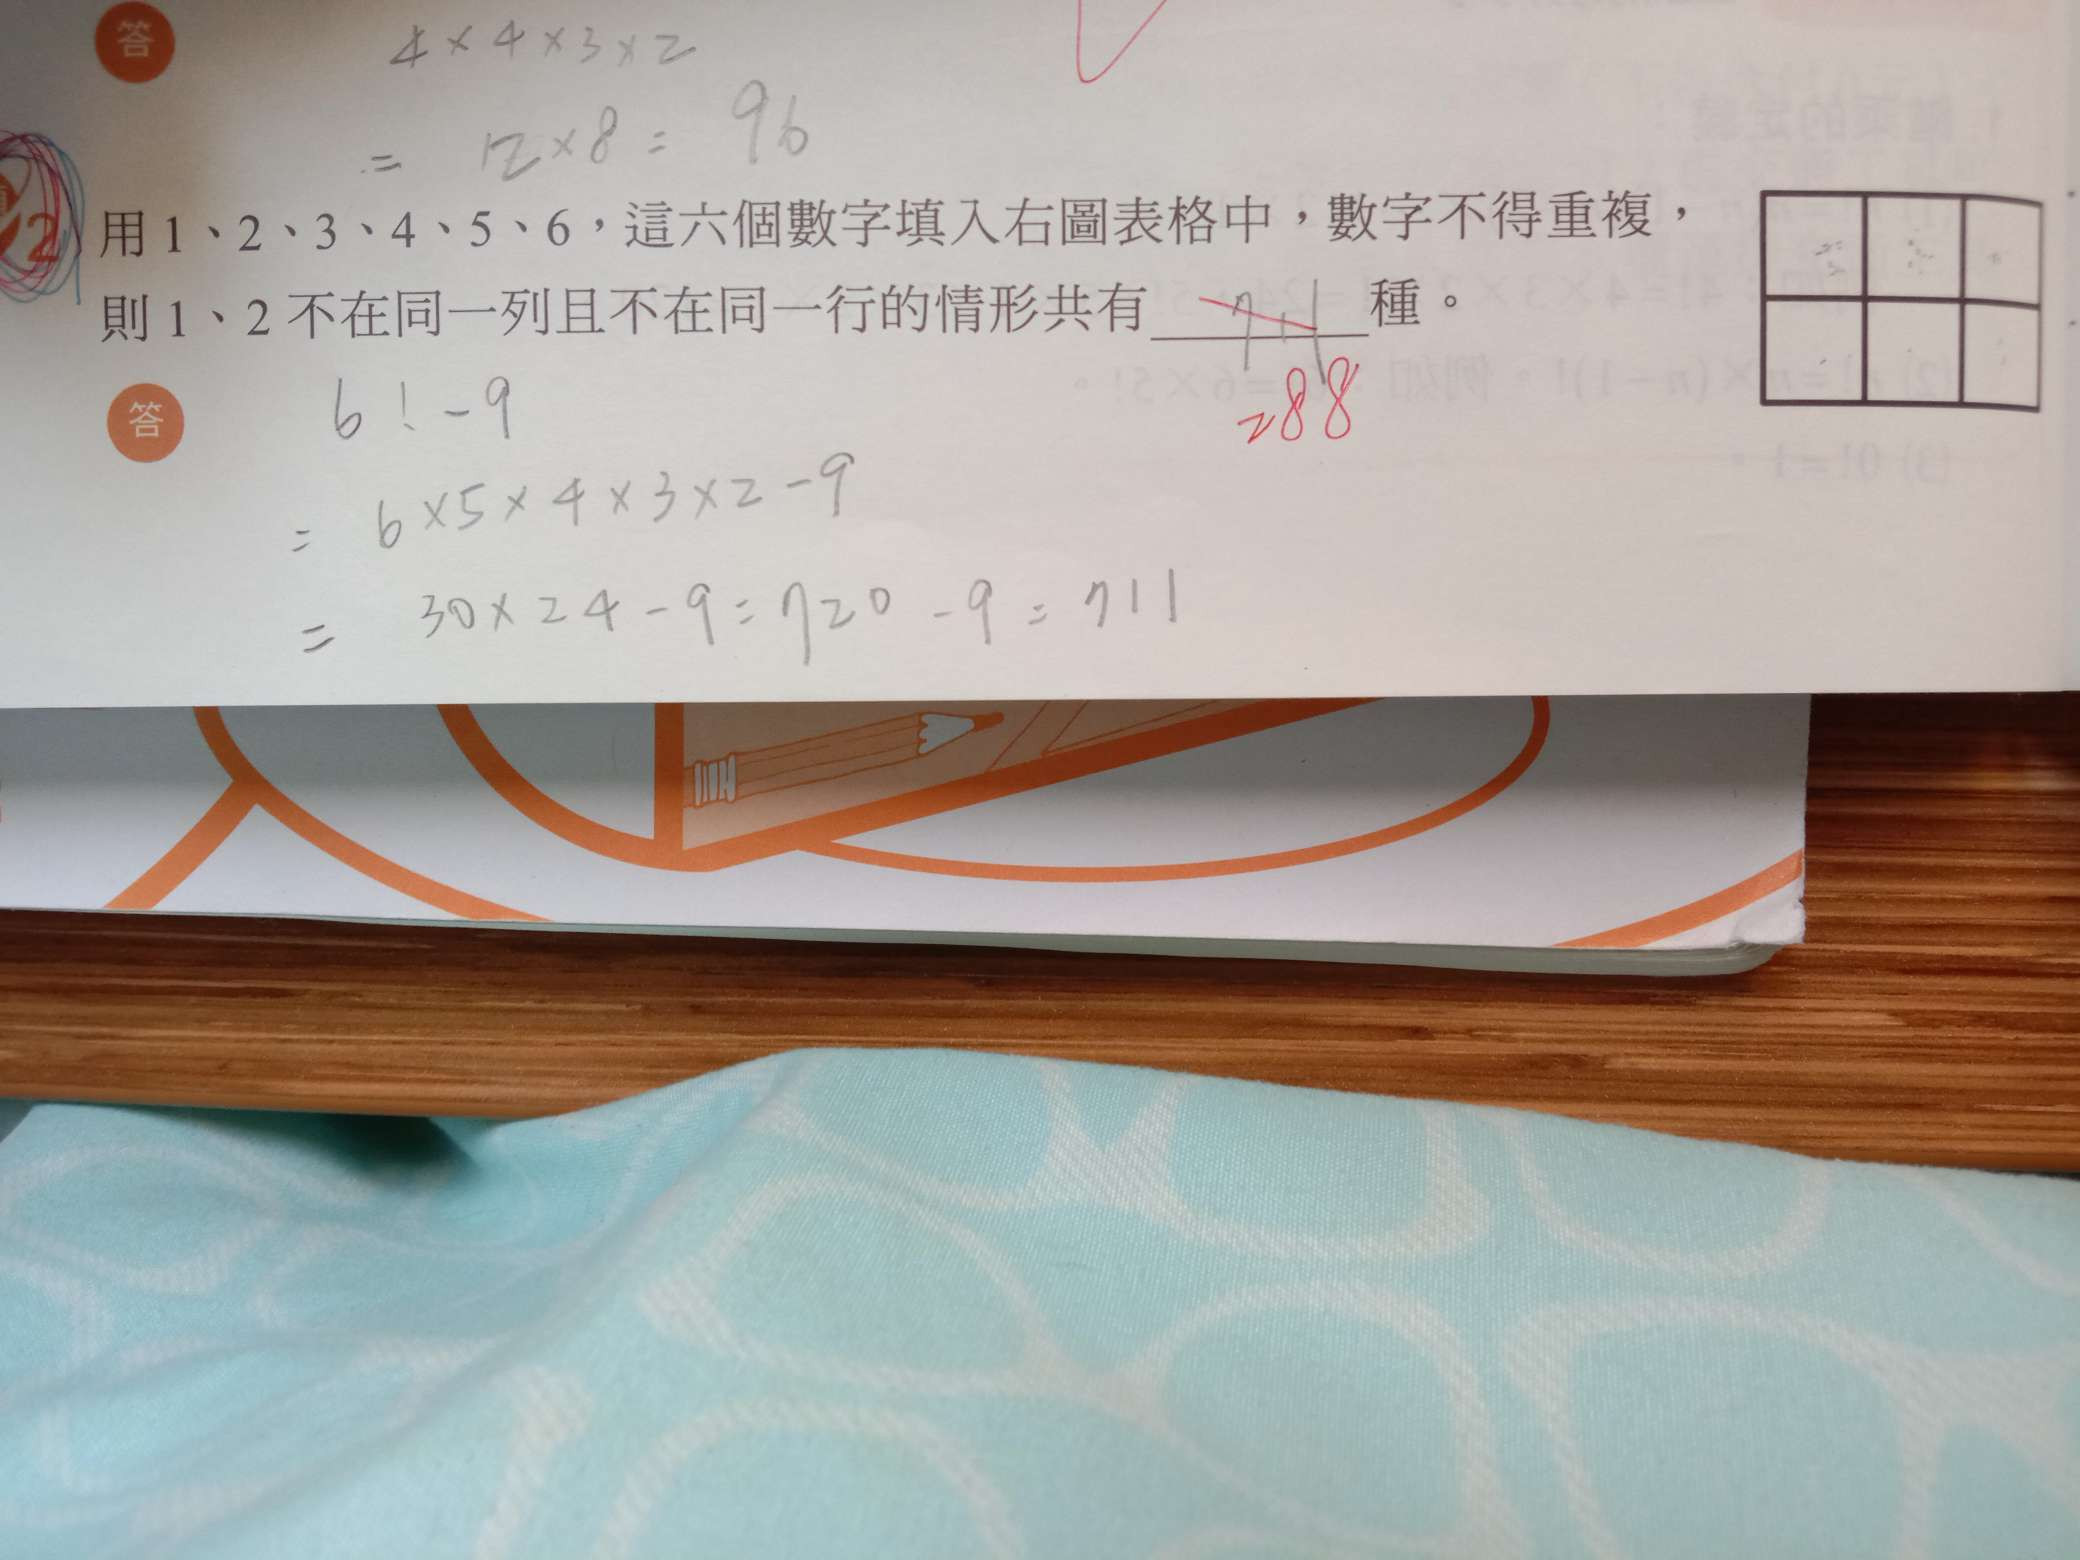 答
4×4×3×2
= 12×8 = 96
2
用1、2、3、4、5、6，這六個數字填入右圖表格中，數字不得重複，
則1、2不在同一列且不在同一行的情形共有711種。
288
答
6!-9
= 6×5×4×3×2-9
= 30×24-9=720-9=711